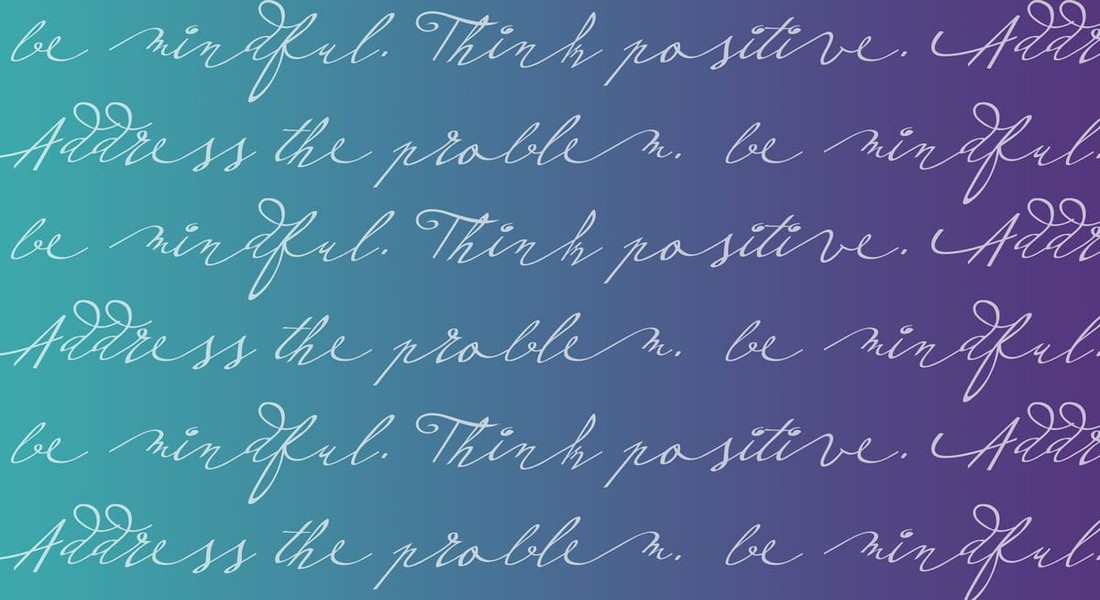 be mindful. Think positive. Addr
Address the problem. be mindful.
be mindful. Think positive. Addr
Address the problem. be mindful.
be mindful. Think positive. Addr
Address the problem. be mindful.